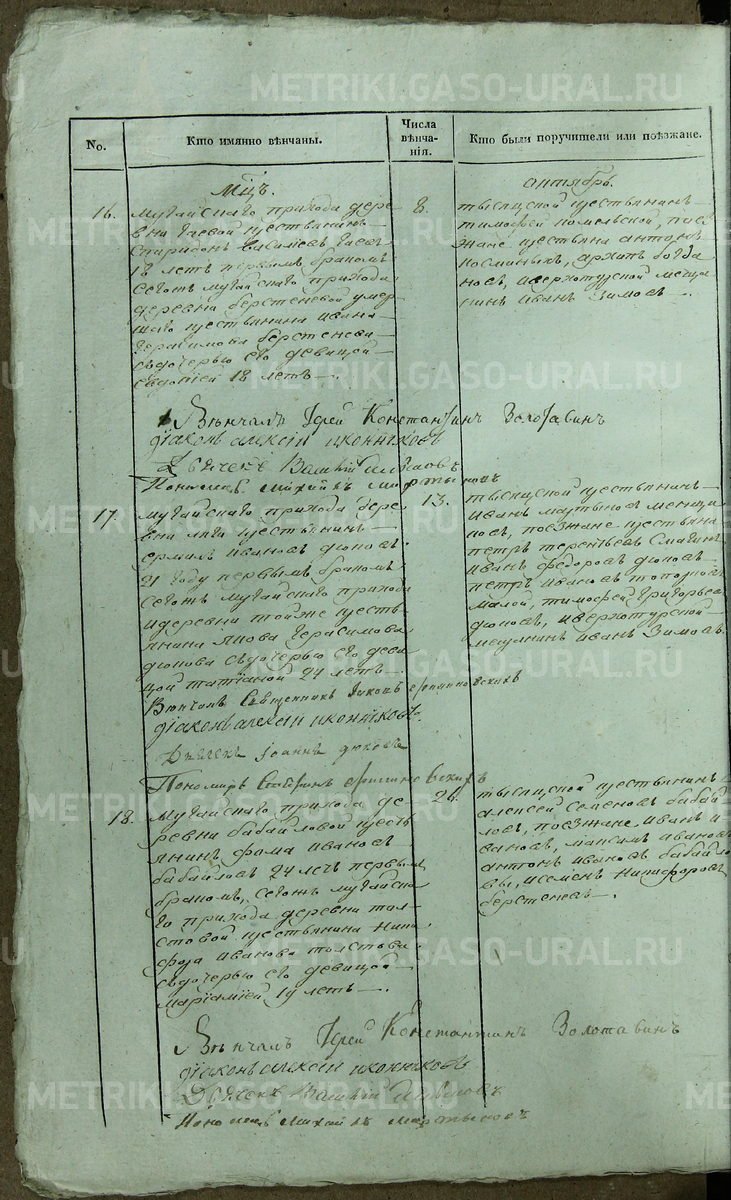 No.
Кто имянно вѣнчаны.
Числа
вѣнча-
нія.
Кто были поручители или поѣзжане.
Мцъ.
октябрь.
16.
Мугайскаго прихода дере-
вни Гаевой крестьянинъ
Спиридонъ Гаевъ
18 летъ первымъ бракомъ
Сегожъ мугайскаго прихода
деревни берстеневой умер-
шаго крестьянина ивана
Герасимова берстенева
съдочерью его девицой
Евдокіей 18 летъ.
8.
тысяцкой крестьянинъ
тимофей поес-
жане крестьяна антонъ
косминыхъ, архипъ богда
новъ, иверхотурской мещи
нинъ иванъ Зимовъ.
Вѣнчалъ Іерей Константинъ Золотавинъ
діаконъ алексіи иконниковъ
Дьячекъ
Пономарь Михаилъ Мартыновъ
17.
мугайскаго прихода дере-
вни крестьянинъ
ермилъ ивановъ дюковъ
21 году первымъ бракомъ
Сегожъ мугайскаго прихода
идеревни тойже кресть
янина якова Герасимова
дюкова съдочерью его деви
цой татіаной 24 летъ
13.
тысяцкой крестьянинъ
иванъ мартыновъ
новъ, поезжане крестьяна
петръ терентьевъ Смагинъ
иванъ федоровъ дюковъ
петръ ивановъ топорковъ
малой, тимофей григорьевъ
дюковъ, иверхотурской
мещанинъ иванъ Зимовъ.
Вѣнчалъ Священникъ
діаконъ алексіи иконниковъ
Дьячекъ іоаннъ дюковъ
Пономарь
18.
Мугайскаго прихода де-
ревни бабайловой кресть
янинъ фома ивановъ
бабайловъ 24 летъ первымъ
бракомъ, Сегожъ мугайска
го прихода деревни тол-
стовой крестьянина ники
фора иванова толстова
съдочерью его девицой
маріаміей 19 летъ.
26.
тысяцкой крестьянинъ
алексей Семеновъ бабай
ловъ, поезжане иванъ и
вановъ, максимъ ивановъ
антонъ ивановъ бабайло
вы, исеменъ никифоровъ
берстеневъ.
Вѣнчалъ Іерей Константинъ Золотавинъ
діаконъ алексіи иконниковъ
Дьячекъ
Пономарь Михаилъ Мартыновъ
METRIKI.GASO-URAL.RU